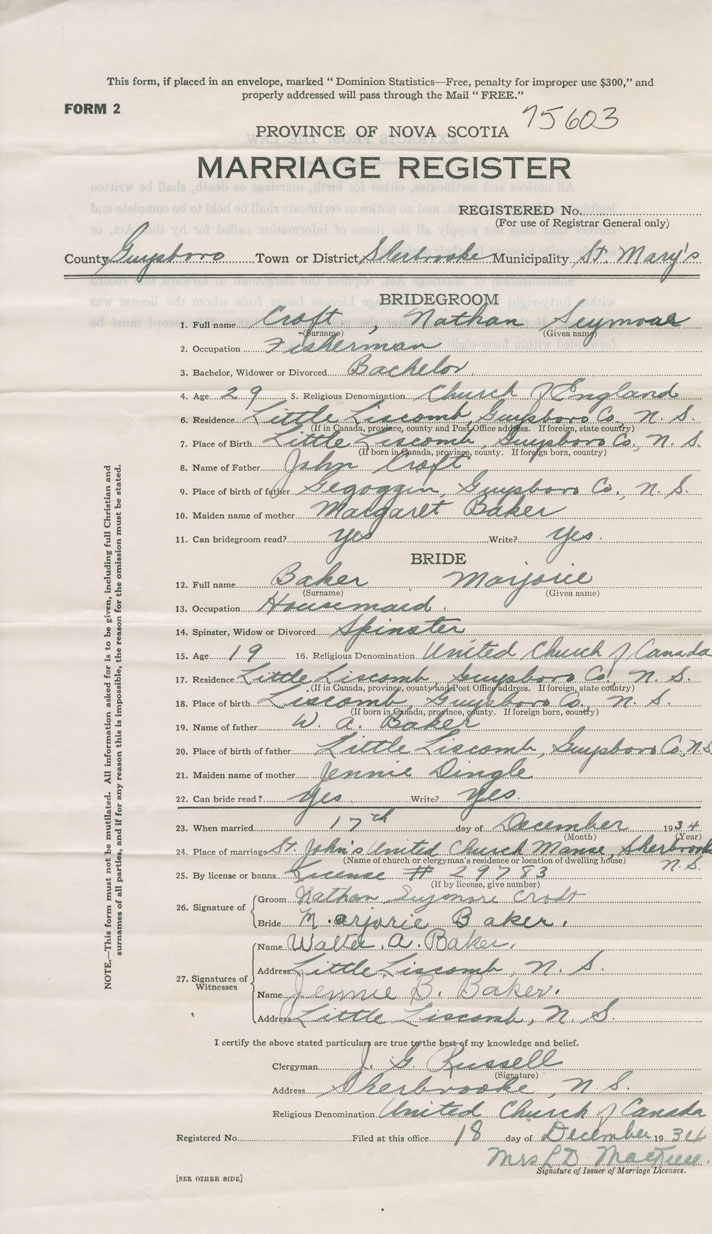 This form, if placed in an envelope, marked " Dominion Statistics—Free, penalty for improper use $300," and
properly addressed will pass through the Mail " FREE."
FORM 2
75603
PROVINCE OF NOVA SCOTIA
MARRIAGE REGISTER
REGISTERED No.
(For use of Registrar General only)
County Guysboro Town or District Sherbrooke Municipality St. Mary's
BRIDEGROOM
1. Full name Croft , Nathan Seymour
(Surname) (Given name)
2. Occupation Fisherman
3. Bachelor, Widower or Divorced Bachelor
4. Age 29 5. Religious Denomination Church of England
6. Residence Little Liscomb, Guysboro Co., N. S.
(If in Canada, province, county and Post Office address. If foreign, state country)
7. Place of Birth Little Liscomb, Guysboro Co., N. S.
(If born in Canada, province, county. If foreign born, country)
8. Name of Father John Croft
9. Place of birth of father Gegoggin, Guysboro Co., N. S.
10. Maiden name of mother Margaret Baker
11. Can bridegroom read? yes Write? yes.
BRIDE
12. Full name Baker Marjorie
(Surname) (Given name)
13. Occupation Housemaid.
14. Spinster, Widow or Divorced Spinster
15. Age 19 16. Religious Denomination United Church of Canada
17. Residence Little Liscomb, Guysboro Co., N. S.
(If in Canada, province, county and Post Office address. If foreign, state country)
18. Place of birth Liscomb, Guysboro Co., N. S.
(If born in Canada, province, county. If foreign born, country)
19. Name of father W. A. Baker
20. Place of birth of father Little Liscomb, Guysboro Co., N.S.
21. Maiden name of mother Jennie Dingle
22. Can bride read? yes Write? yes.
23. When married 17th day of December 1934
(Month) (Year)
24. Place of marriage St. John's United Church Manse, Sherbrooke
(Name of church or clergyman's residence or location of dwelling house) N.S.
25. By license or banns License # 29783
(If by license, give number)
26. Signature of Groom Nathan Seymore Croft
Bride Marjorie Baker.
27. Signatures of Witnesses Name Walter. A. Baker.
Address Little Liscomb, N. S.
Name Jennie B. Baker.
Address Little Liscomb, N. S.
I certify the above stated particulars are true to the best of my knowledge and belief.
Clergyman J. G. Russell
(Signature)
Address Sherbrooke, N. S.
Religious Denomination United Church of Canada
Registered No. Filed at this office 18 day of December 1934
Mrs
Signature of Issuer of Marriage Licenses.
[SEE OTHER SIDE]
NOTE.—This form must not be mutilated. All information asked for is to be given, including full Christian and
surnames of all parties, and if for any reason this is impossible, the reason for the omission must be stated.